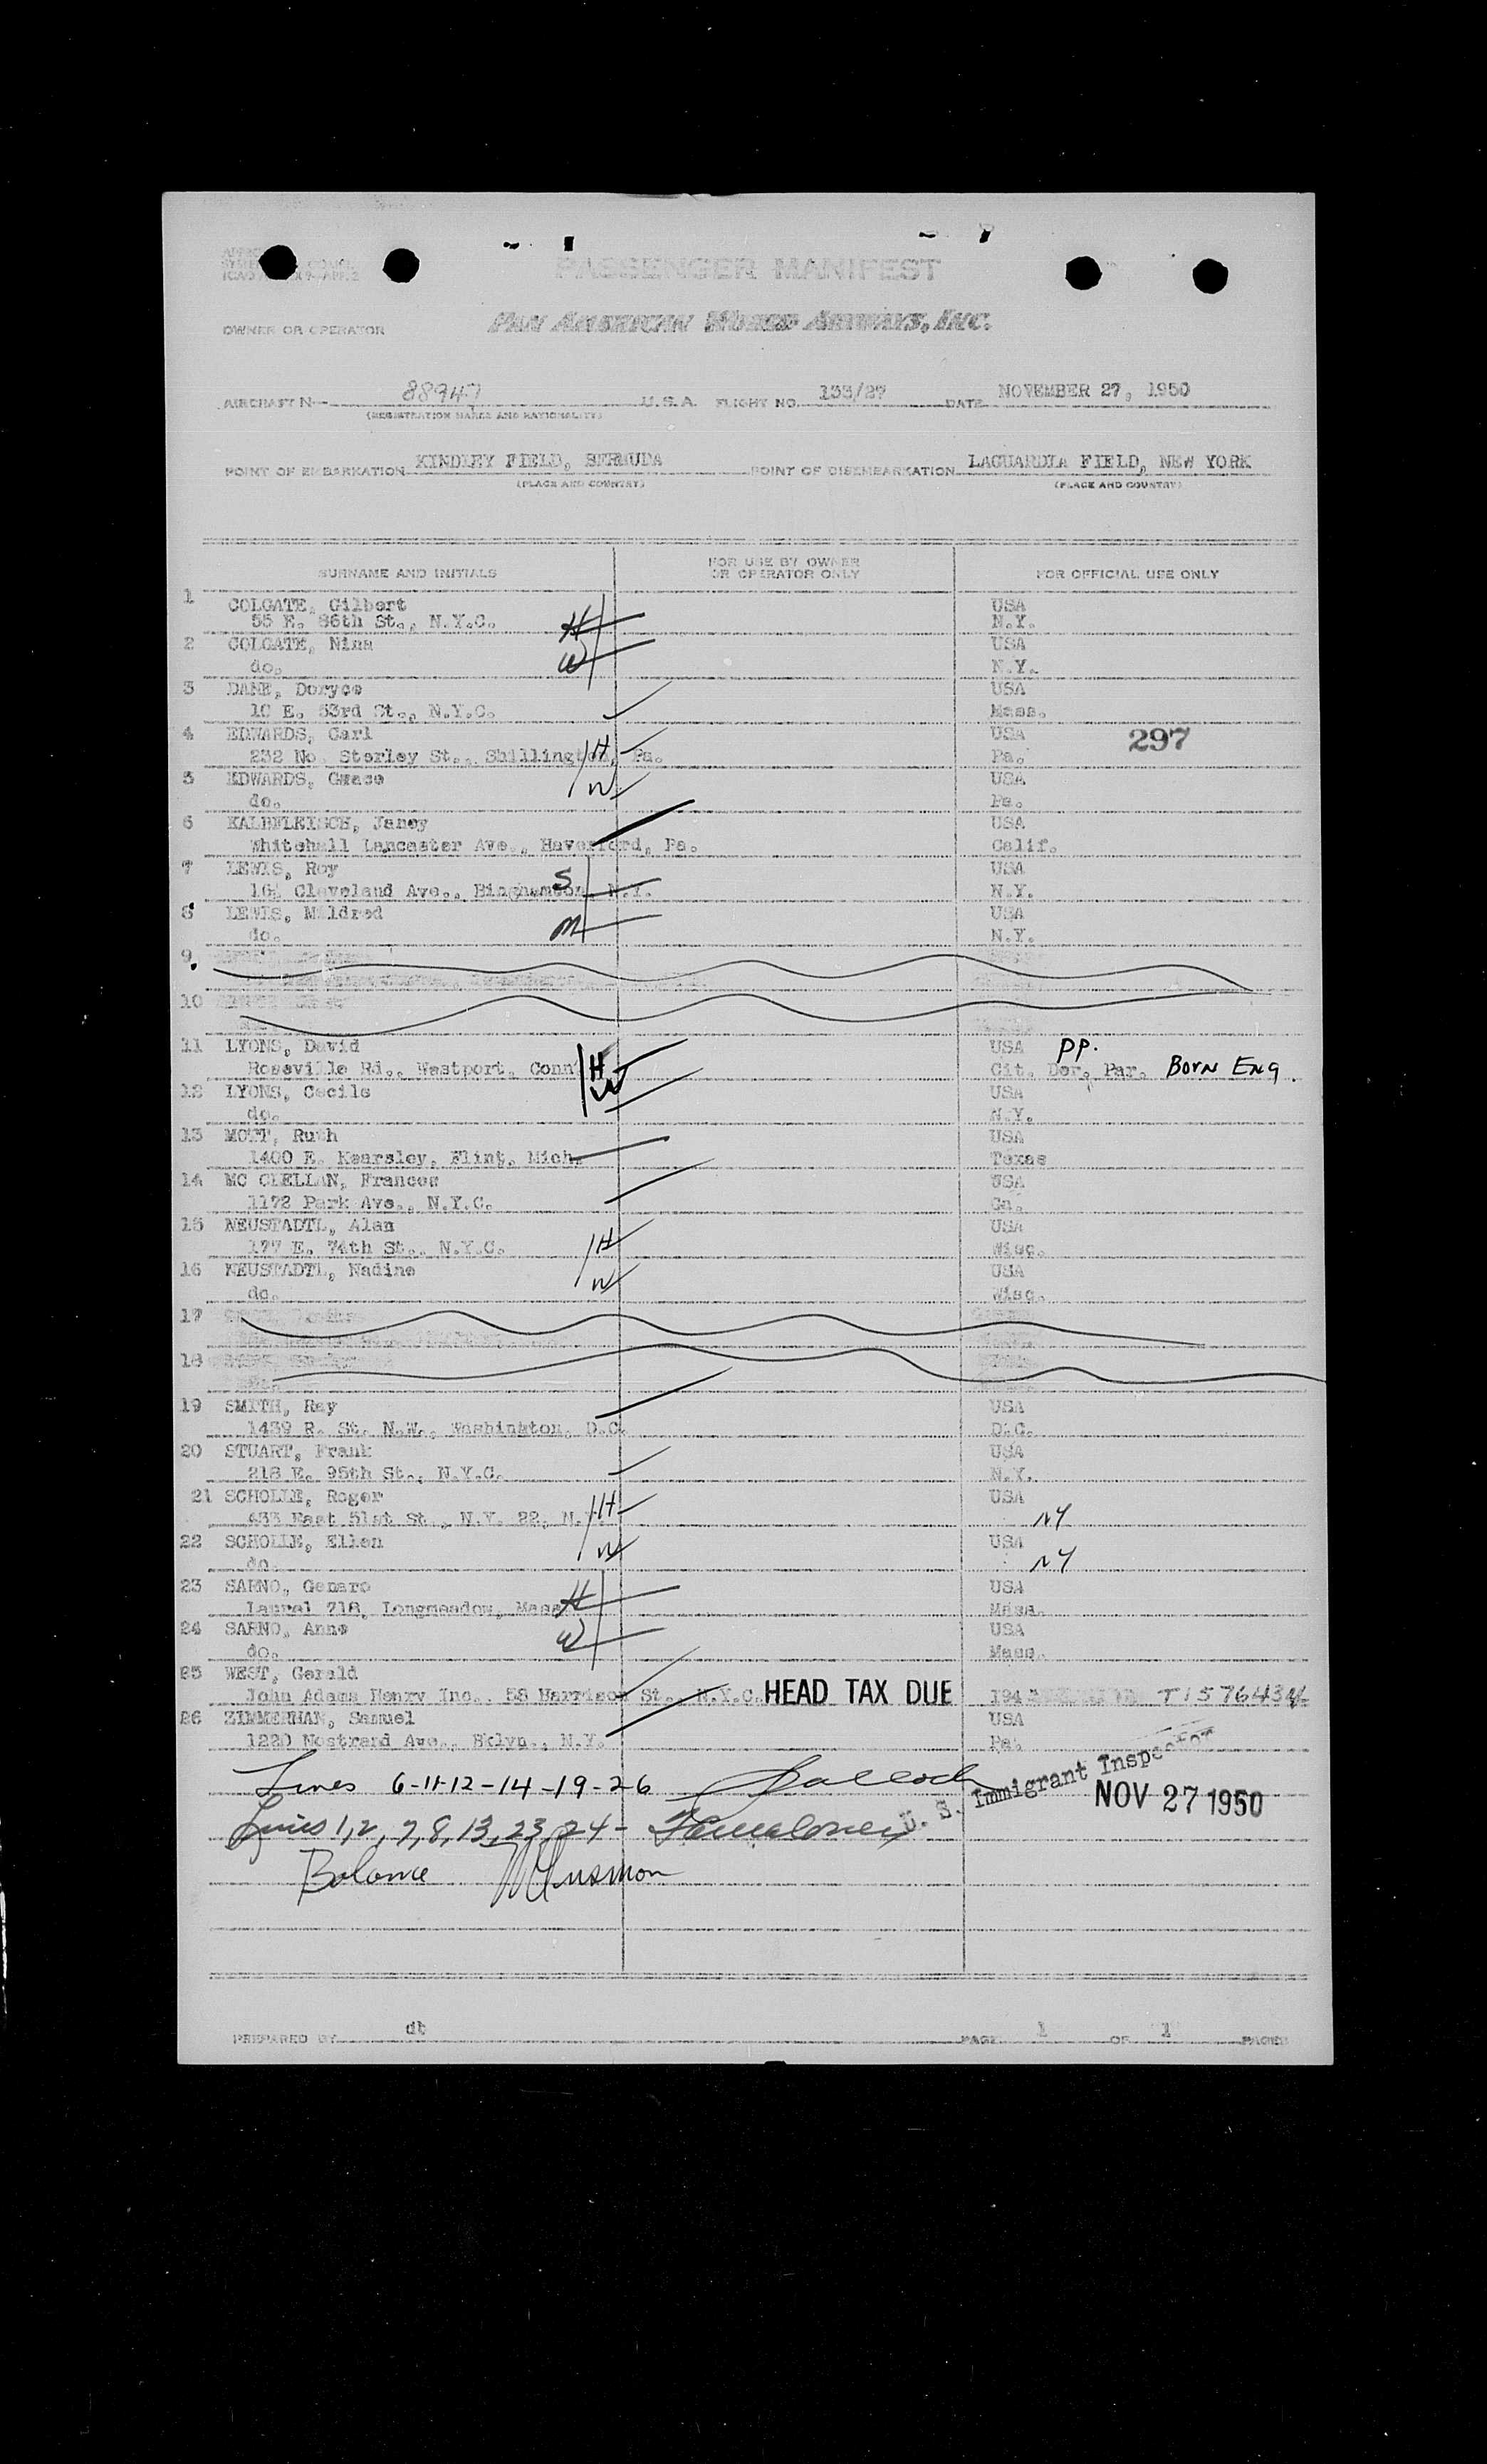 PASSENGER MANIFEST
OWNER OR OPERATOR PAN AMERICAN WORLD AIRWAYS, INC.
AIRCRAFT N- 88947 U.S.A. FLIGHT NO. 133/27 DATE NOVEMBER 27, 1950
(REGISTRATION MARKS AND NATIONALITY)
POINT OF EMBARKATION KINDLEY FIELD, BERMUDA POINT OF DISEMBARKATION LAGUARDIA FIELD, NEW YORK
(PLACE AND COUNTRY) (PLACE AND COUNTRY)
SURNAME AND INITIALS FOR USE BY OWNER OR OPERATOR ONLY FOR OFFICIAL USE ONLY
1 COLGATE, Gilbert USA
55 E. 86th St., N.Y.C. H N.Y.
2 COLGATE, Nina USA
do. W N.Y.
3 DANE, Doryce USA
10 E. 53rd St., N.Y.C. Mass.
4 EDWARDS, Carl USA 297
232 No. Sterley St., Shillington, Pa. H Pa.
5 EDWARDS, Grace USA
do. W Pa.
6 KALBFLEISCH, Janey USA
Whitehall Lancaster Ave., Haverford, Pa. Calif.
7 LEWIS, Roy USA
Cleveland Ave., Binghamton, N.Y. S N.Y.
8 LEWIS, Mildred USA
do. M N.Y.
9
10
11 LYONS, David USA PP.
Roseville Rd., Westport, Conn H Cit. Der. Par. BORN ENG.
12 LYONS, Cecile W USA
do. N.Y.
13 MOTT, Ruth USA
1400 E. Kearsley, Flint, Mich. Texas
14 MC CLELLAN, Frances USA
1172 Park Ave., N.Y.C. Ga.
15 NEUSTADTL, Alan USA
177 E. 74th St., N.Y.C. H Wisc.
16 NEUSTADTL, Nadine USA
do. W Wisc.
17
18
19 SMITH, Ray USA
1439 R. St. N.W., Washington, D.C. D.C.
20 STUART, Frank USA
218 E. 95th St., N.Y.C. N.Y.
21 SCHOLLE, Roger USA
433 East 51st St., N.Y. 22, N.Y. H NY
22 SCHOLLE, Ellen USA
do. W NY
23 SARNO, Genaro USA
Laurel 718, Longmeadow, Mass H Mass.
24 SARNO, Anne USA
do. W Mass.
25 WEST, Gerald
John Adams Henry Inc. 58 Harrison St. N.Y.C. HEAD TAX DUE T1576434
26 ZIMMERMAN, Samuel USA
1220 Nostrand Ave., Bklyn., N.Y. Pa.
Lines 6-11-12-14-19-26
U. S. Immigrant Inspector
NOV 27 1950
Lines 1, 2, 7, 8, 13, 23, 24 -
Balance
PREPARED BY db PAGE 1 OF 1 PAGES